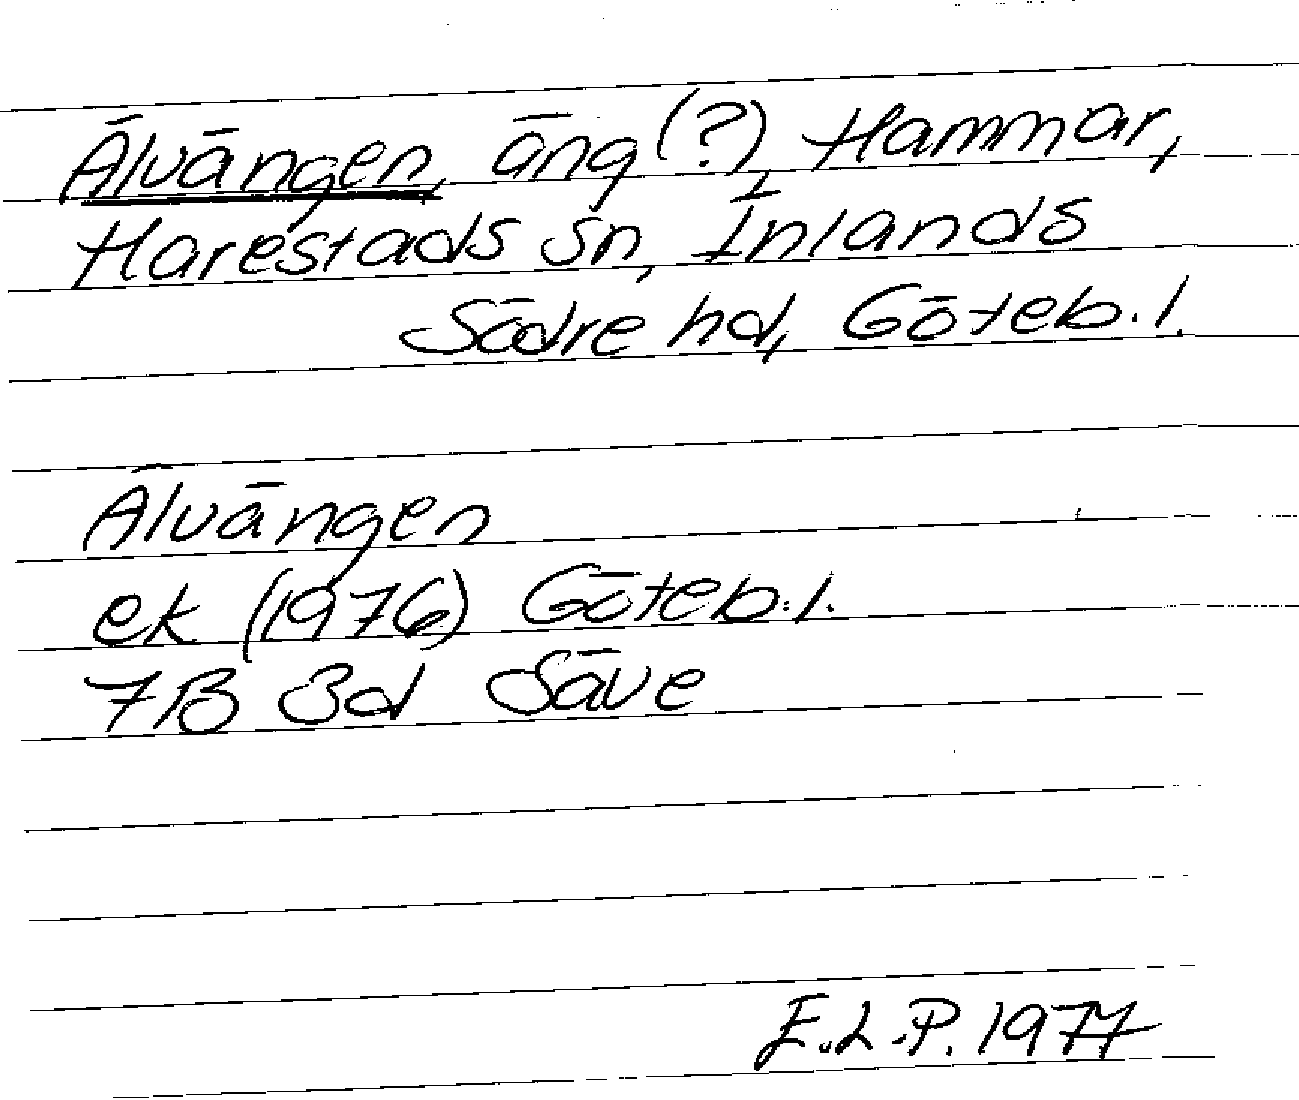 Älvängen, äng (?), Hammar,
Harestads sn, Inlands
Södre hd, Göteb. l.
Älvängen
ek (1976) Göteb. l.
7B 3d Säve
E.L.P. 1977